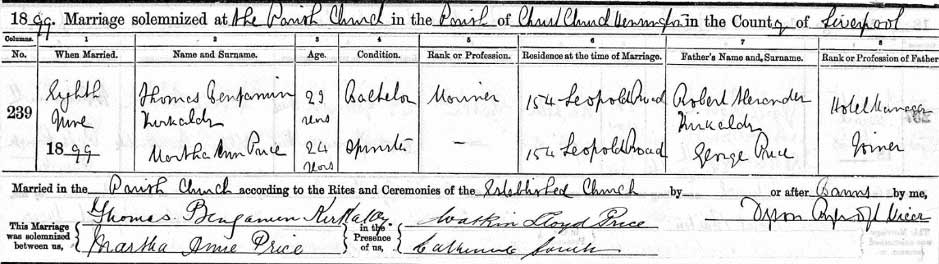 1899. Marriage solemnized at the Parish Church in the Parish of Christ Church in the County of Liverpool
Columns. 1 2 3 4 5 6 7 8
No. When Married. Name and Surname. Age. Condition. Rank or Profession. Residence at the time of Marriage. Father's Name and Surname. Rank or Profession of Father
239
Eighth June 1899 Thomas Benjamin Kirkaldy 23 years Bachelor Mariner 154 Leopold Road Robert Alexander Kirkaldy Hotel Manager
Martha Ann Price 24 years Spinster — 154 Leopold Road George Price Joiner
Married in the Parish Church according to the Rites and Ceremonies of the Established Church by or after Banns by me,
This Marriage was solemnized between us, Thomas Benjamin Kirkaldy Martha Annie Price in the Presence of us, Watkin Lloyd Price Catherine Vicar